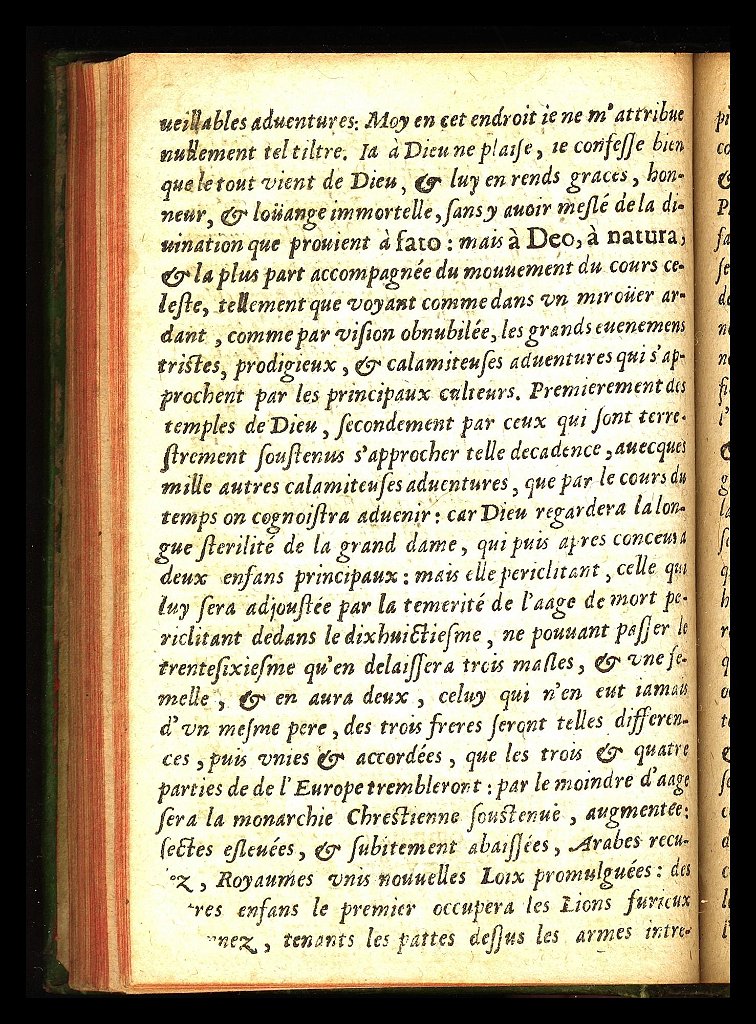 ueillables aduentures: Moy en cet endroit ie ne m'attribue
nullement tel tiltre. Ia à Dieu ne plaiſe, ie confeſſe bien
que le tout vient de Dieu, & luy en rends graces, hon-
neur, & loüange immortelle, ſans y auoir meſlé de la di-
uination que prouient à fato: mais à Deo, à natura,
& la plus part accompagnée du mouuement du cours ce-
leſte, tellement que voyant comme dans vn miroüer ar-
dant, comme par viſion obnubilée, les grands euenemens
triſtes, prodigieux, & calamiteuſes aduentures qui s'ap-
prochent par les principaux culteurs. Premierement des
temples de Dieu, ſecondement par ceux qui ſont terre-
ſtrement ſouſtenus s'approcher telle decadence, auecques
mille autres calamiteuſes aduentures, que par le cours du
temps on cognoiſtra aduenir: car Dieu regardera la lon-
gue ſterilité de la grand dame, qui puis apres conceura
deux enfans principaux: mais elle periclitant, celle qui
luy ſera adjouſtée par la temerité de l'aage de mort pe-
riclitant dedans le dixhuictieſme, ne pouuant paſſer le
trenteſixieſme qu'en delaiſſera trois maſles, & vne fe-
melle, & en aura deux, celuy qui n'en eut iamais
d'vn meſme pere, des trois freres ſeront telles differen-
ces, puis vnies & accordées, que les trois & quatre
parties de de l'Europe trembleront: par le moindre d'aage
ſera la monarchie Chreſtienne ſouſtenuë, augmentée:
ſectes eſleuées, & ſubitement abaiſſées, Arabes recu-
, Royaumes vnis nouuelles Loix promulguées: des
enfans le premier occupera les Lions furieux
, tenants les pattes deſſus les armes intre-